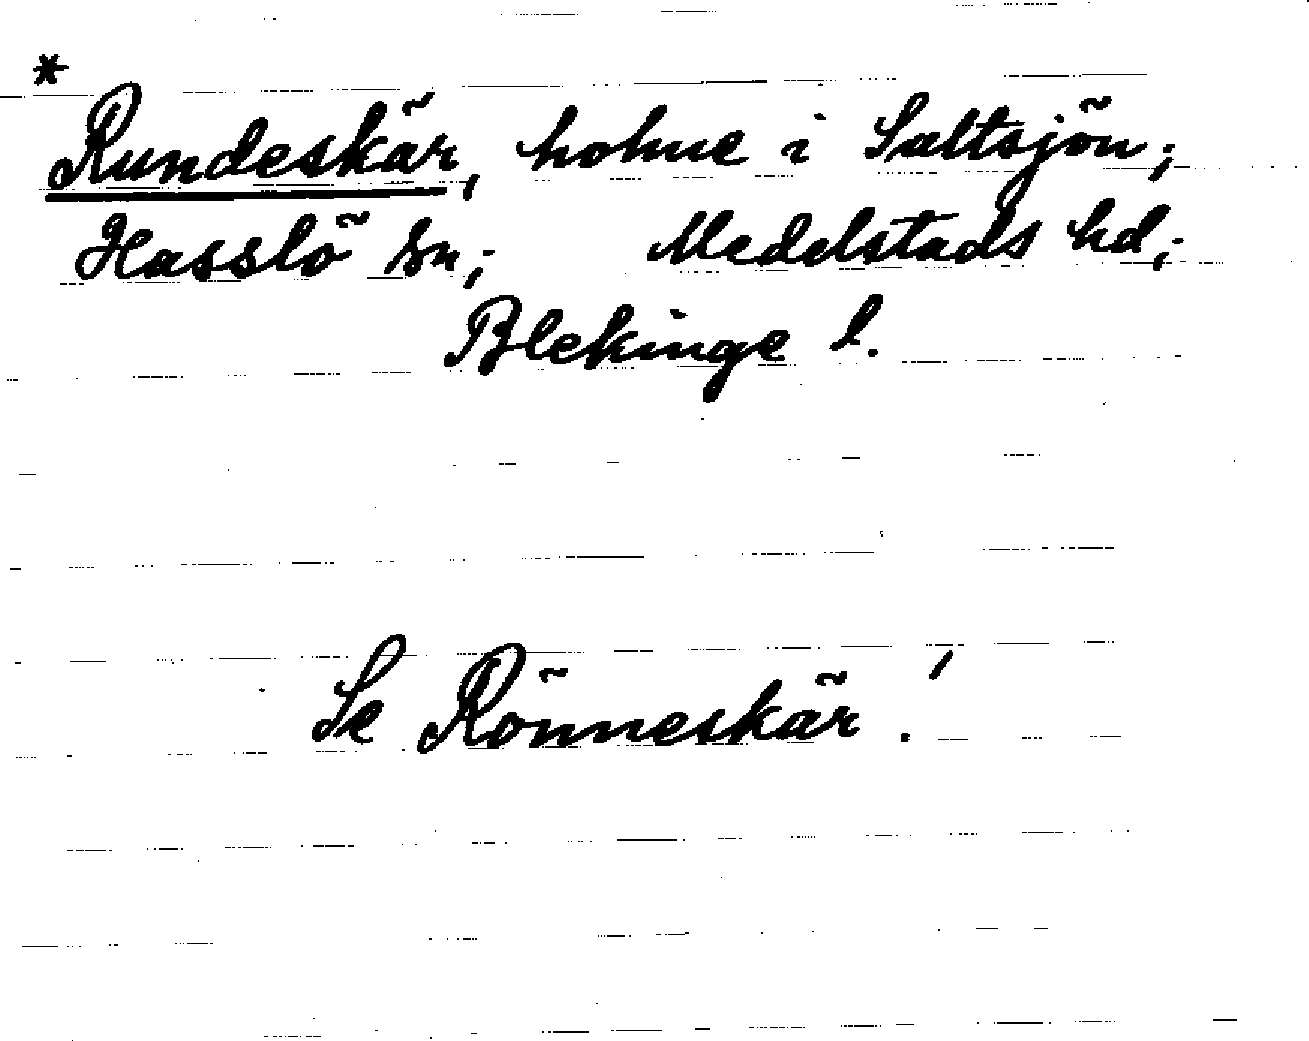 *
Rundeskär, holme i Saltsjön;
Hasslö sn; Medelstads hd;
Blekinge l.
Se Rönneskär!